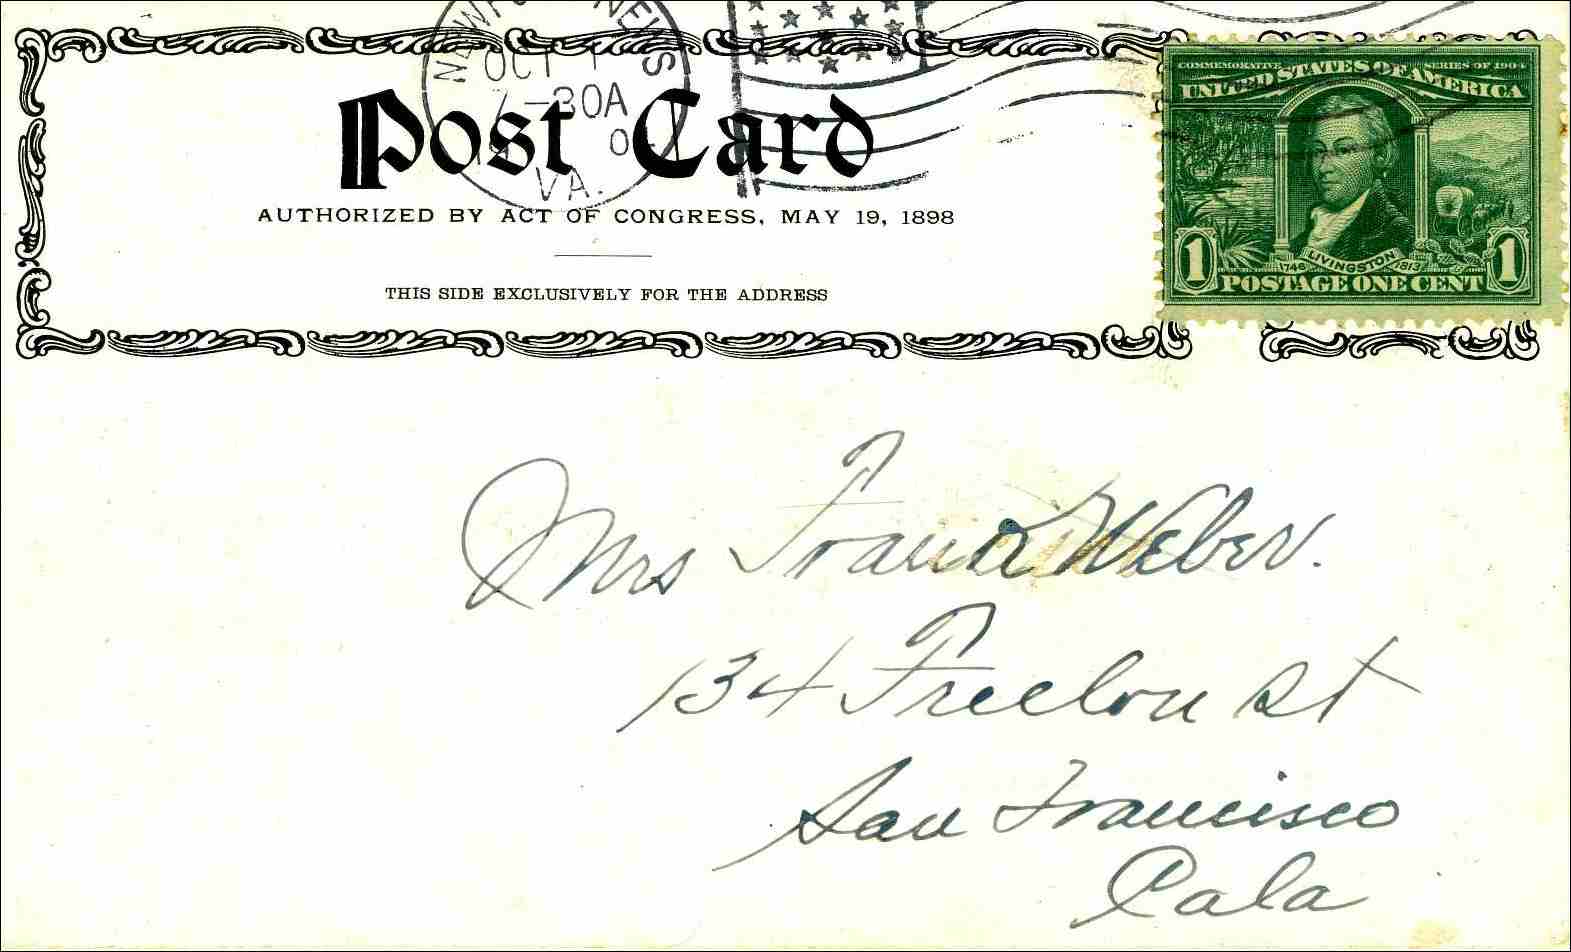 NEWPORT NEWS
OCT 1
7-30A
VA.
Post Card
AUTHORIZED BY ACT OF CONGRESS, MAY 19, 1898
THIS SIDE EXCLUSIVELY FOR THE ADDRESS
COMMEMORATIVE SERIES OF 1904
UNITED STATES OF AMERICA
1746 LIVINGSTON 1813
1 POSTAGE ONE CENT 1
Mrs Frank Weber.
134 Freelon St
San Francisco
Cala